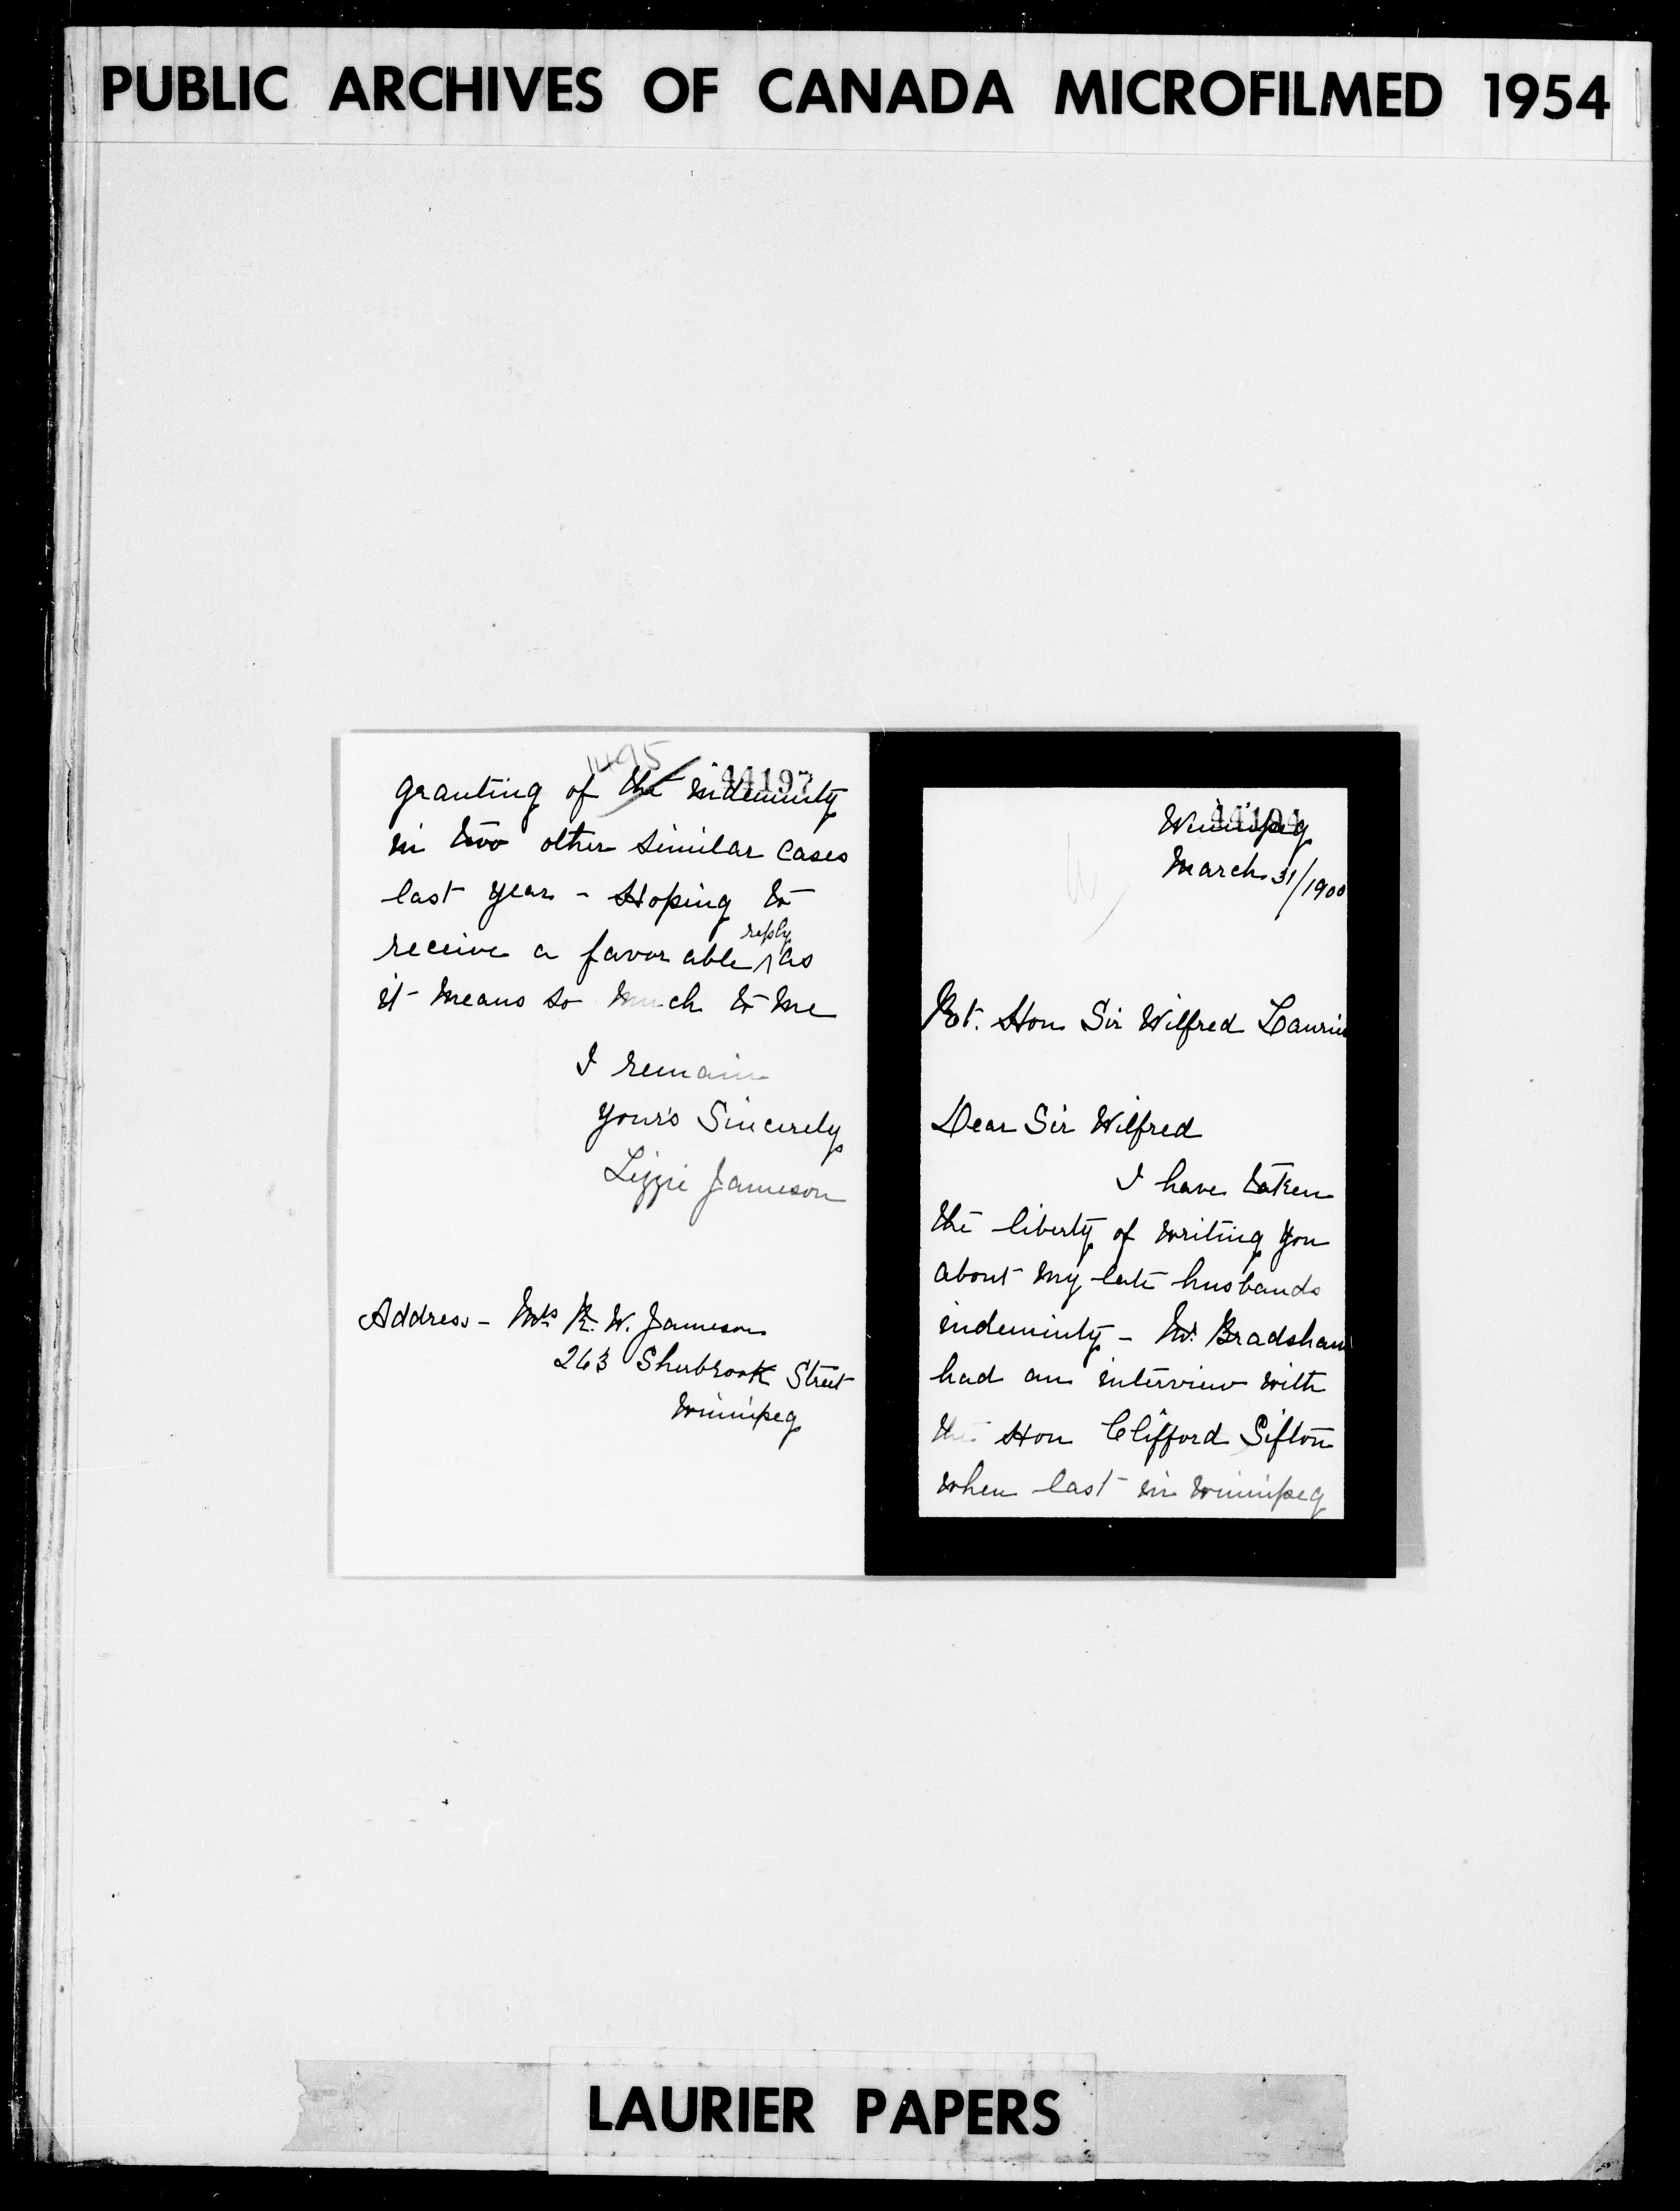 PUBLIC ARCHIVES OF CANADA MICROFILMED 1954
44197
granting of the indeminty
in two other similar cases
last year - Hoping to
receive a favor able reply as
it means so much to me
I remain
Your's Sincerely
Lizzie Jameson
Address - Mrs R. W. Jameson
263 Sherbrook Street
Winnipeg
44194
Winnipeg
March 31/1900
Rt. Hon Sir Wilfred Laurier
Dear Sir Wilfred
I have taken
the liberty of writing you
about my late husbands
indeminty - Mr. Bradshaw
had an interview with
the Hon Clifford Sifton
when last in Winnipeg
LAURIER PAPERS